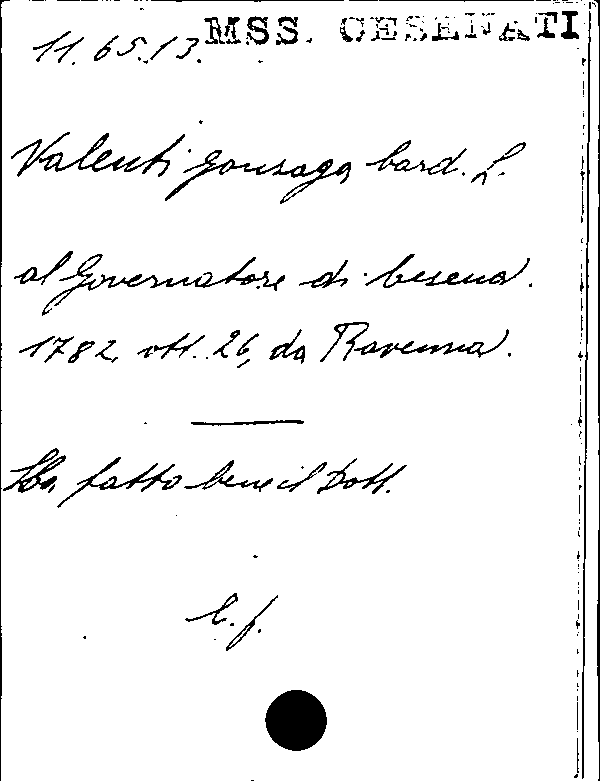 MSS. CESENATI
11.65.13.
Valenti Gonzaga Card. L.
al Governatore di Cesena.
1782, ott. 26, da Ravenna.
Ha fatto bene il Dott.
C. f.